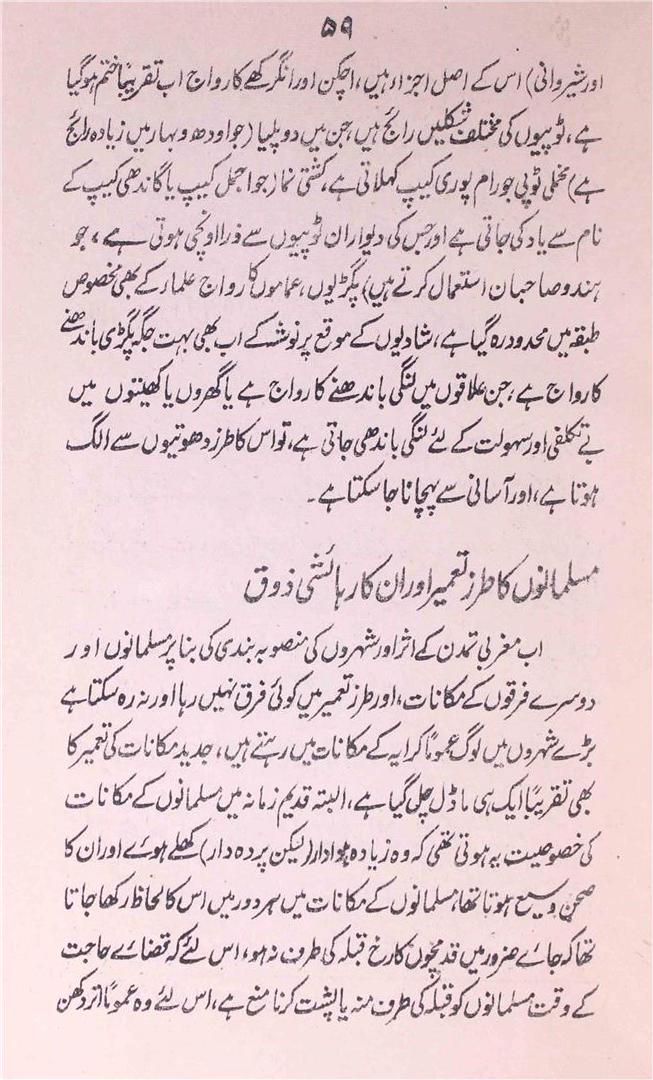 ۵۹
اور شیروانی) اس کے اصل اجزاء ہیں، اچکن اور انگرکھے کا رواج اب تقریباً ختم ہوگیا
ہے، ٹوپیوں کی مختلف شکلیں رائج ہیں، جن میں دوپلیا (جو اودھ و بہار میں زیادہ رائج
ہے) مخملی ٹوپی جو رام پوری کیپ کہلاتی ہے، کشتی نما (جو اجمل کیپ یا گاندھی کیپ کے
نام سے یاد کی جاتی ہے اور جس کی دیوار ان ٹوپیوں سے ذرا اونچی ہوتی ہے، جو
ہندو صاحبان استعمال کرتے ہیں) پگڑیوں، عماموں کا رواج علماء کے بھی مخصوص
طبقہ میں محدود رہ گیا ہے، شادیوں کے موقع پر نوشہ کے اب بھی بہت جگہ پگڑی باندھنے
کا رواج ہے، جن علاقوں میں لنگی باندھنے کا رواج ہے یا گھروں یا کھیتوں میں
بے تکلفی اور سہولت کے لئے لنگی باندھی جاتی ہے، تو اس کا طرز دھوتیوں سے الگ
ہوتا ہے، اور آسانی سے پہچانا جا سکتا ہے۔
مسلمانوں کا طرز تعمیر اور ان کا رہائشی ذوق
اب مغربی تمدن کے اثر اور شہروں کی منصوبہ بندی کی بنا پر مسلمانوں اور
دوسرے فرقوں کے مکانات، اور طرز تعمیر میں کوئی فرق نہیں رہا اور نہ رہ سکتا ہے
بڑے شہروں میں لوگ عموماً کرایہ کے مکانات میں رہتے ہیں، جدید مکانات کی تعمیر کا
بھی تقریباً ایک ہی ماڈل چل گیا ہے، البتہ قدیم زمانہ میں مسلمانوں کے مکانات
کی خصوصیت یہ ہوتی تھی کہ وہ زیادہ ہوادار (لیکن پردہ دار) کھلے ہوئے اور ان کا
صحن وسیع ہوتا تھا، مسلمانوں کے مکانات میں ہر دور میں اس کا لحاظ رکھا جاتا
تھا کہ جائے ضرور میں قدمچوں کا رخ قبلہ کی طرف نہ ہو، اس لئے کہ قضائے حاجت
کے وقت مسلمانوں کو قبلہ کی طرف منہ یا پشت کرنا منع ہے، اس لئے وہ عموماً اتر دکھن